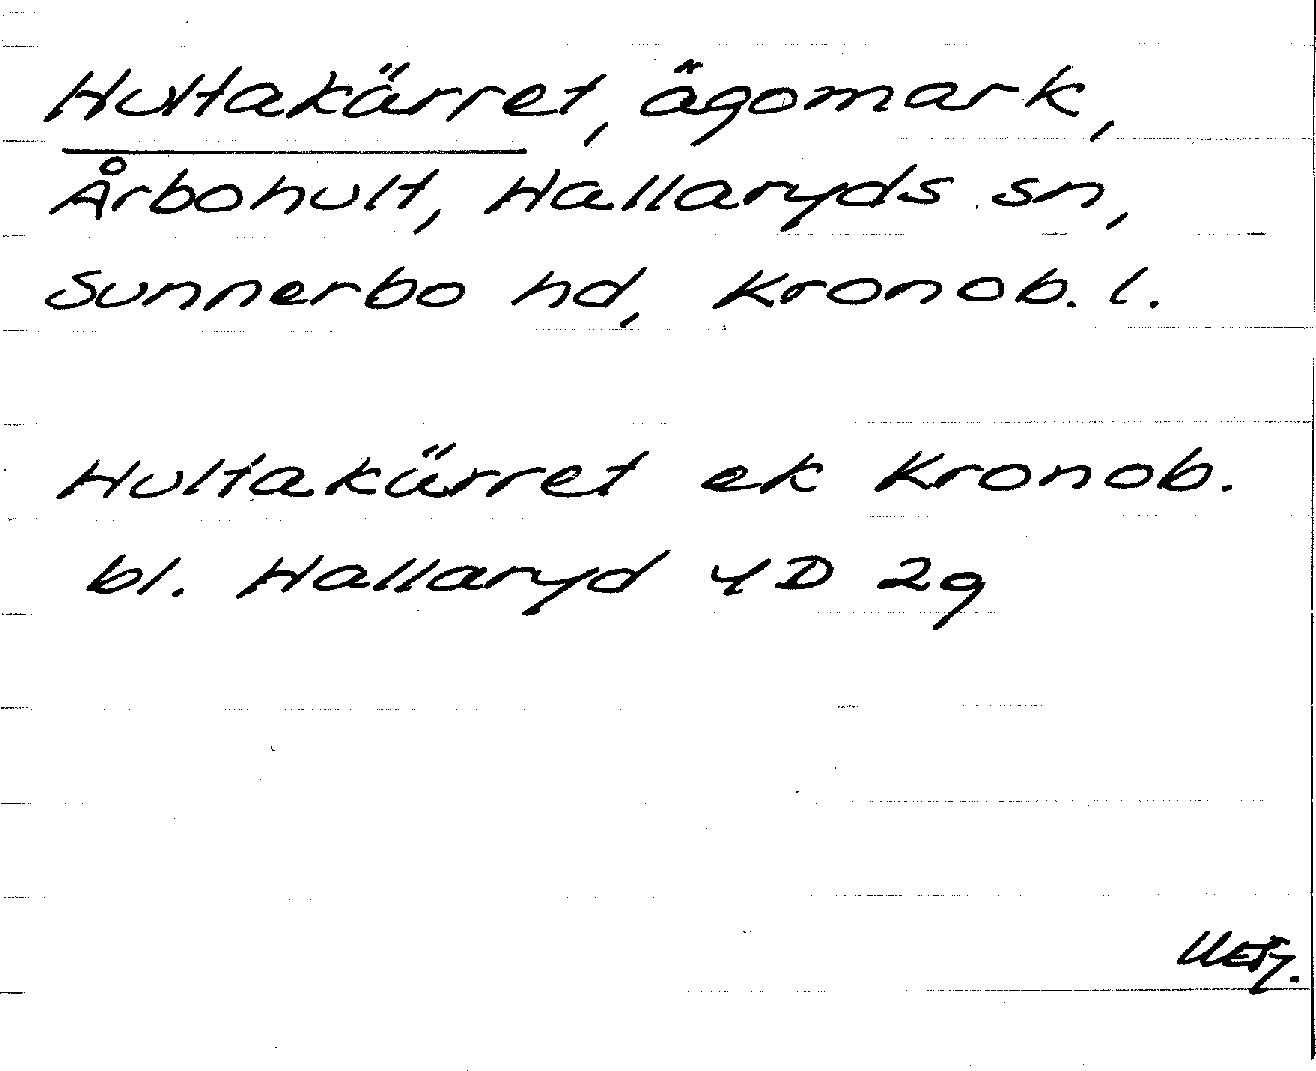 Hultakärret, ägomark,
Årbohult, Hallaryds sn,
Sunnerbo hd, Kronob. l.
Hultakärret ek Kronob.
bl. Hallaryd 4D 2g